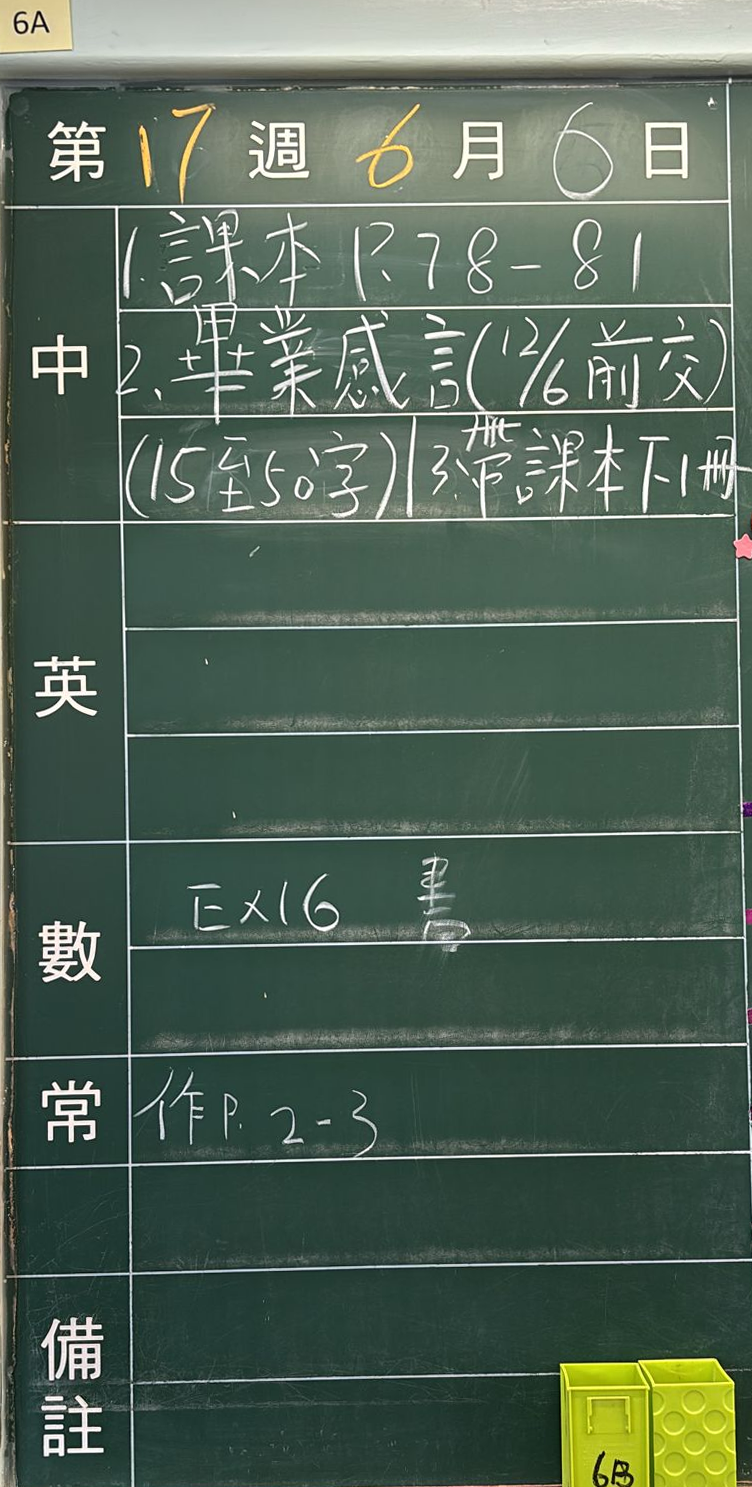 6A
第 17 週 6 月 6 日
中
1.課本 P.78-81
2.畢業感言(12/6前交)
(15至50字)|3.帶課本下1冊
英
數
Ex16 書
常
作P. 2-3
備註
6B